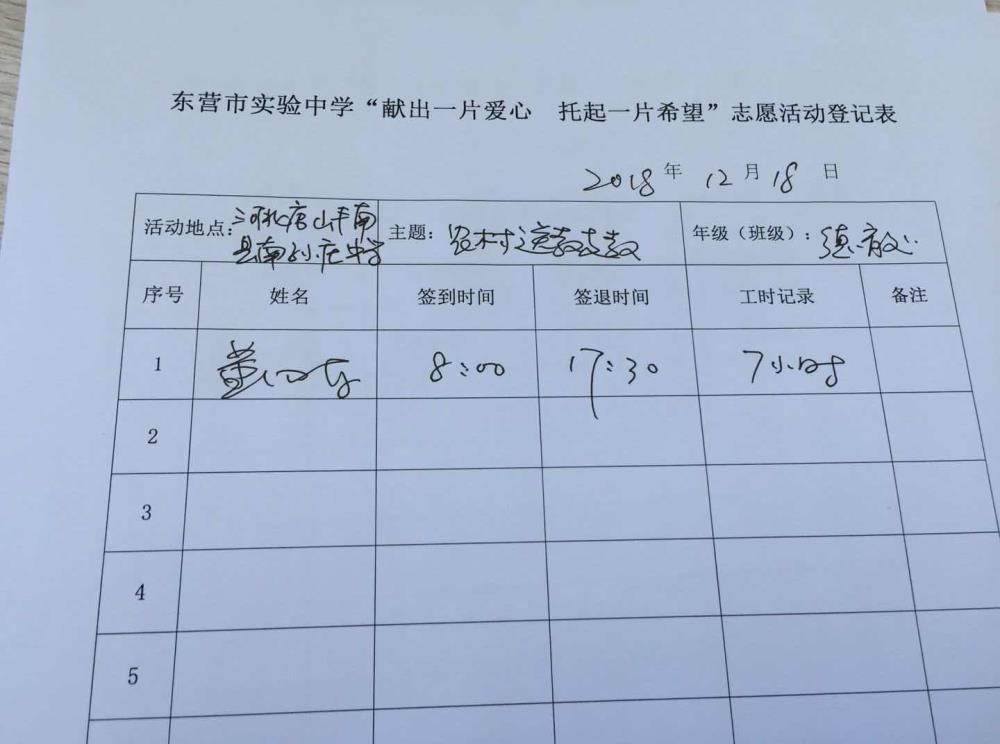 东营市实验中学“献出一片爱心 托起一片希望”志愿活动登记表
2018年 12月18日
活动地点：河北唐山丰南县南孙庄中学 主题：农村送教支教 年级（班级）：德育处
序号 姓名 签到时间 签退时间 工时记录 备注
1 董 8:00 17:30 7小时
2
3
4
5